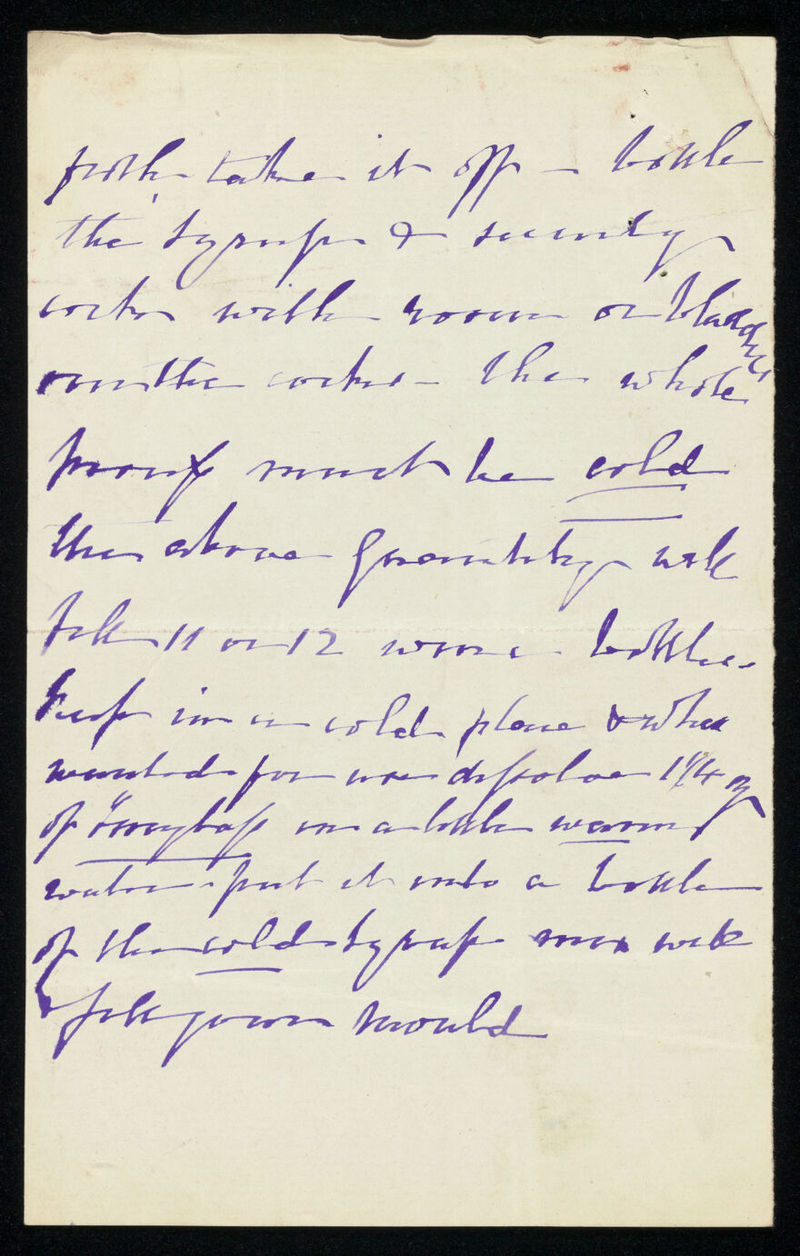 froth take it off – bottle
the syrup & securely
cork with rosin or bladder
over the corks – the whole
process must be cold
the above quantity will
fill 11 or 12 wine bottles.
Keep in a cold place & when
wanted for use dissolve 1 1/4 oz
of in a little warm
water – put it into a bottle
of the cold syrup mix well
& fill your mould